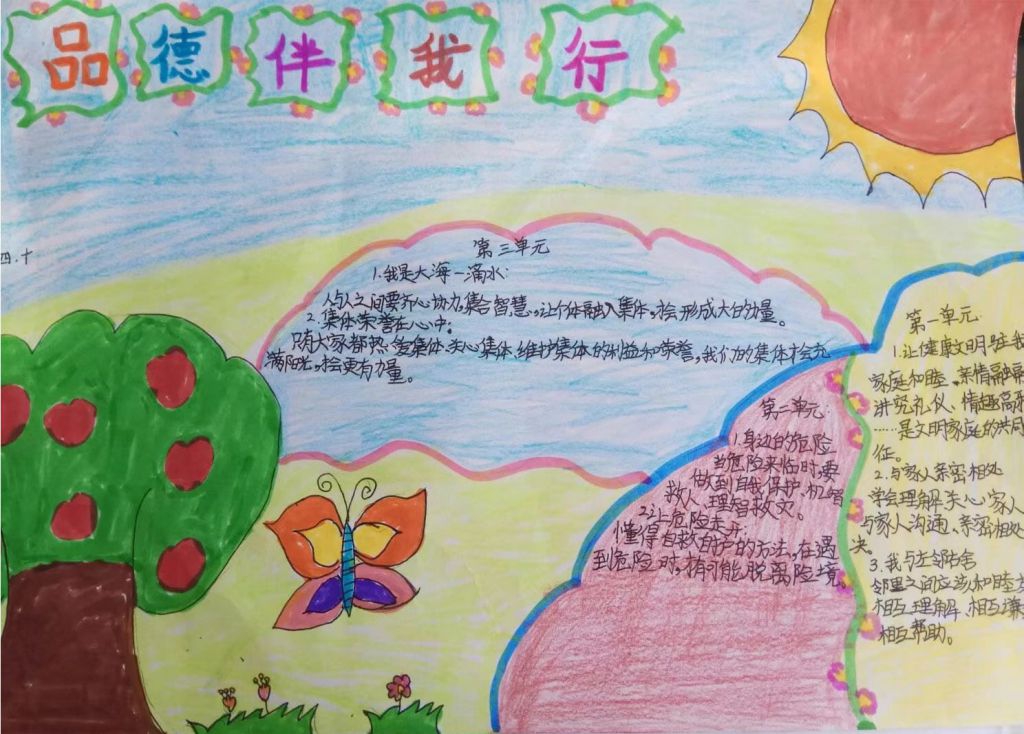 品德伴我行
四.十
第三单元
1.我是大海一滴水:
人与人之间要齐心协力,集合智慧,让个体融入集体,才会形成大的力量。
2.集体荣誉在心中。
只有大家都热爱集体、关心集体、维护集体的利益和荣誉,我们的集体才会充
满阳光,才会更有力量。
第二单元
1.身边的危险
当危险来临时,要
做到自我保护、机智
救人、理智救灾。
2.让危险走开:
懂得自救自护的方法,在遇
到危险时,才有可能脱离险境。
第一单元
1.让健康文明驻我
家庭和睦、亲情融融
讲究礼仪、情趣高雅
……是文明家庭的共同
征。
2.与家人亲密相处
学会理解关心家人
与家人沟通、亲密相处
决。
3.我与左邻右舍
邻里之间应该和睦
相互理解、相互谦
相互帮助。